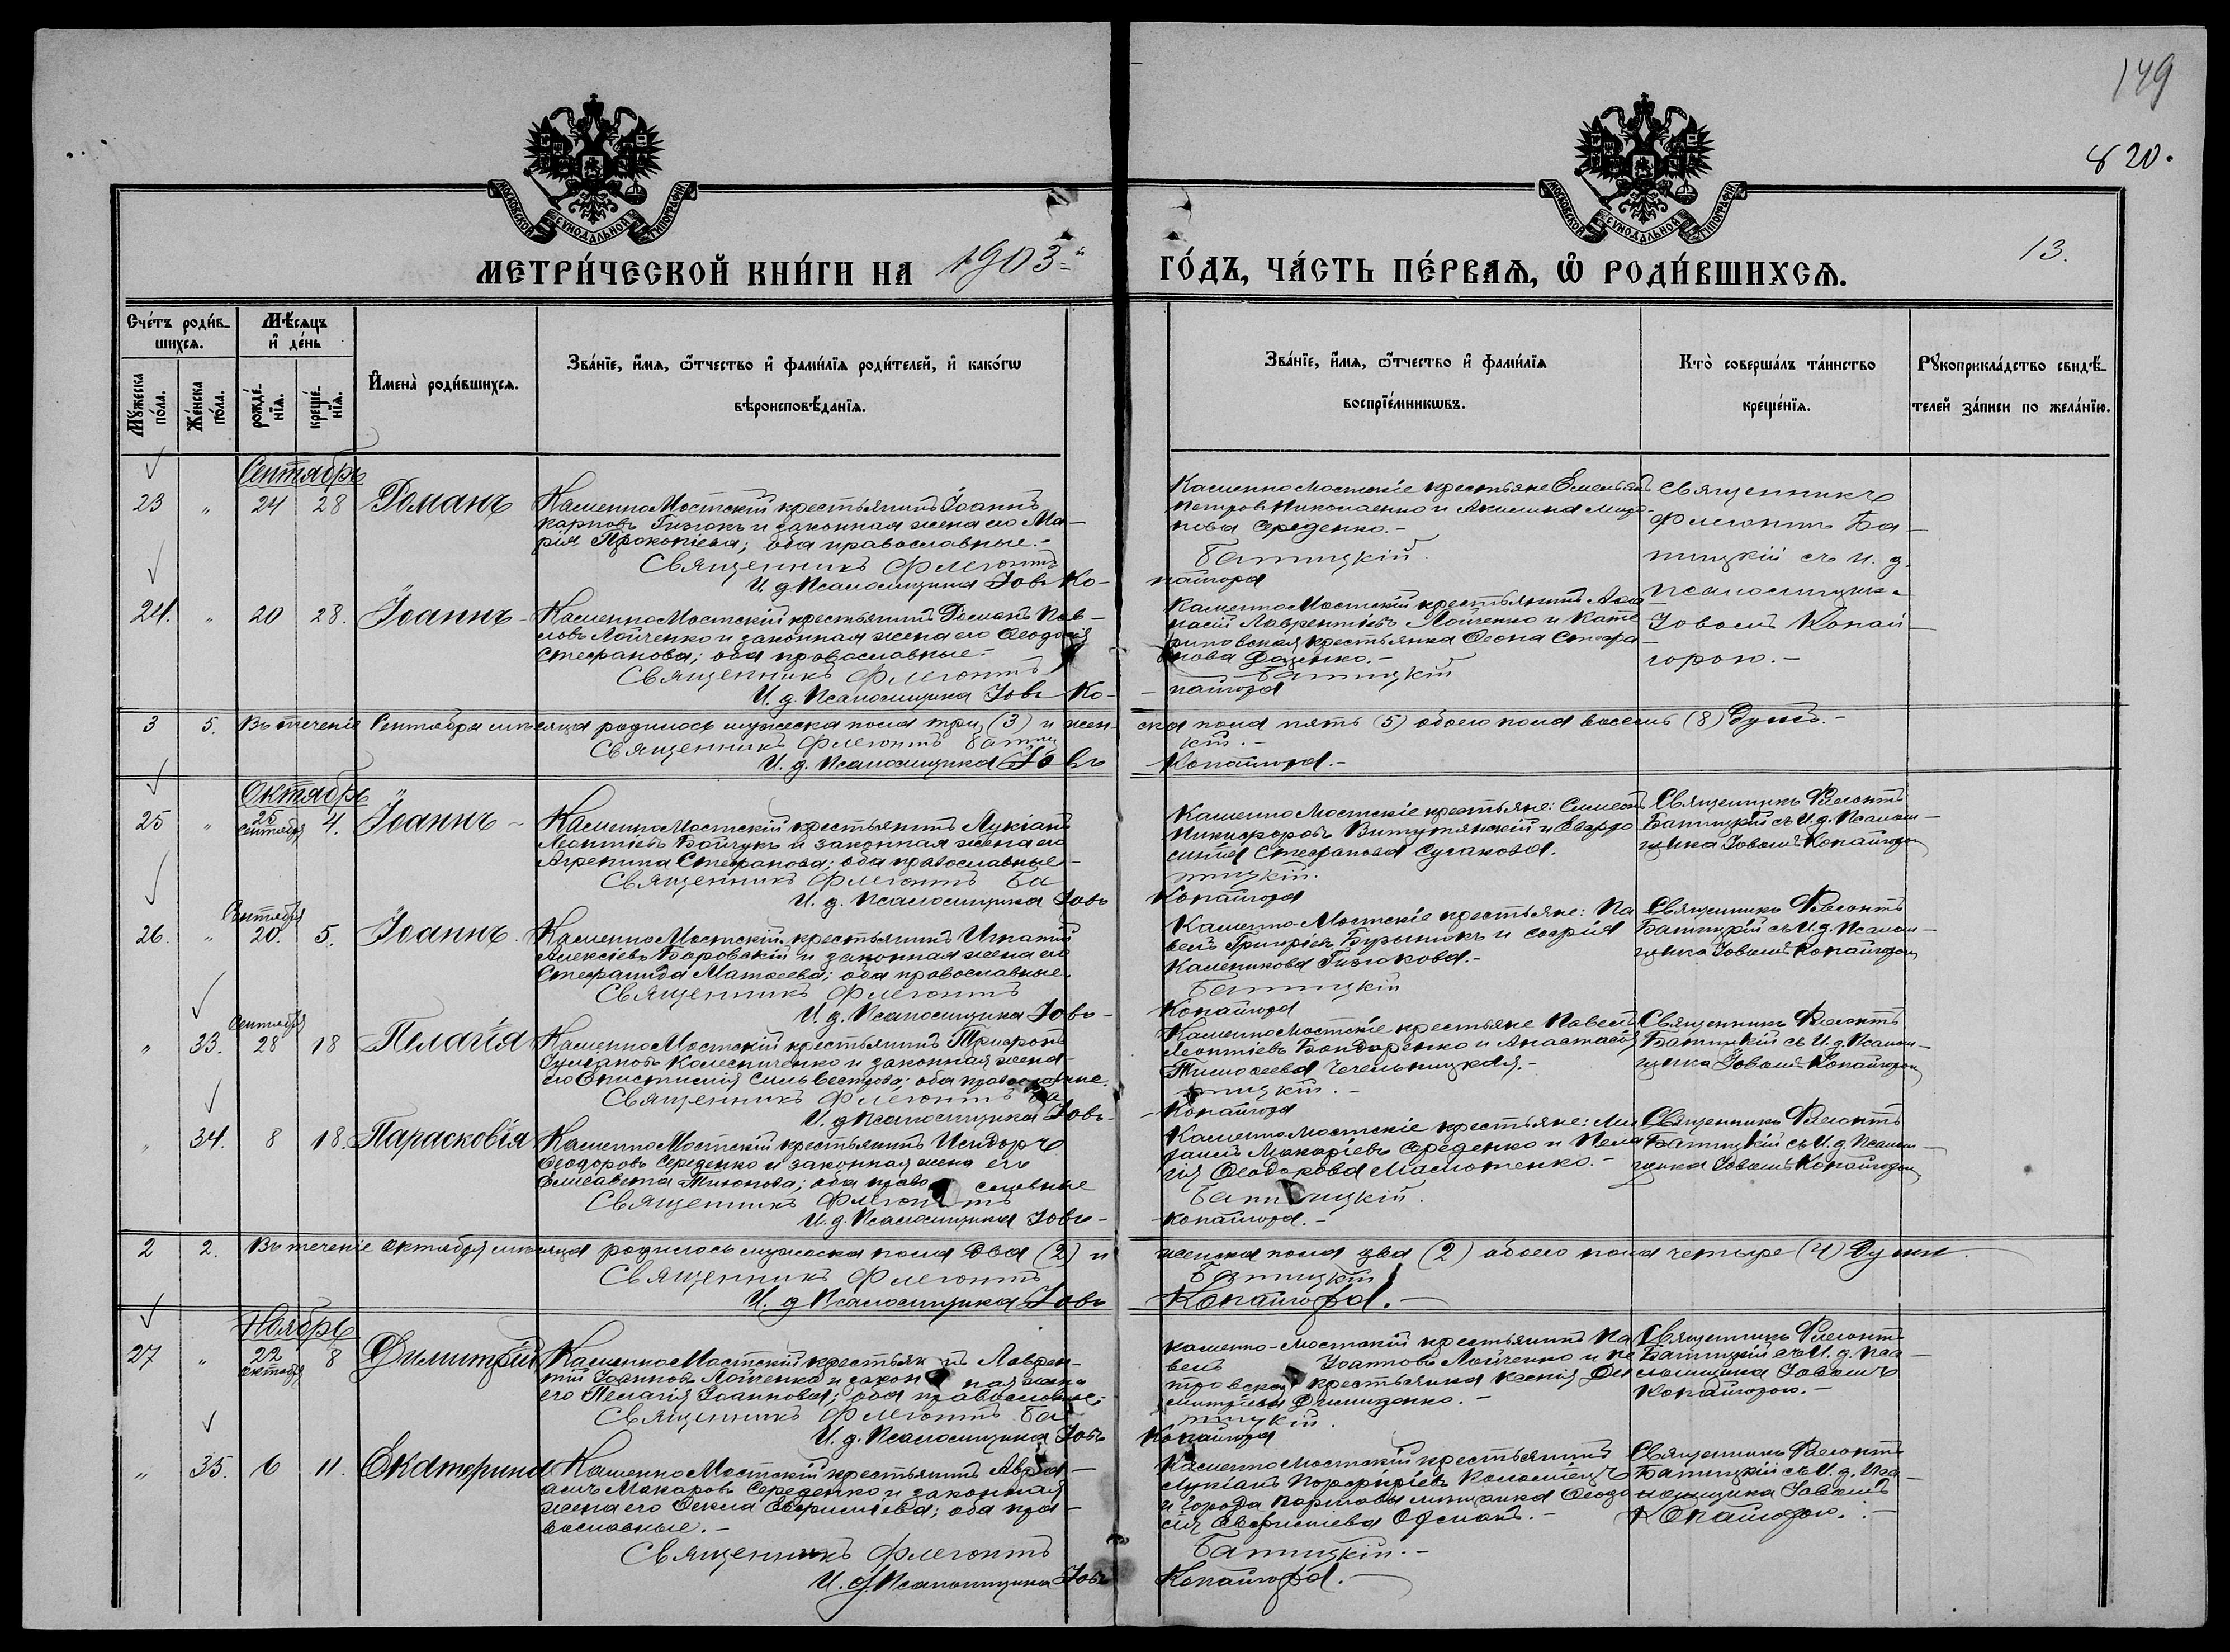 149
820.
13.
МОСКОВСКОЙ СѴНОДАЛЬНОЙ ТИПОГРАФІИ
МОСКОВСКОЙ СѴНОДАЛЬНОЙ ТИПОГРАФІИ
МЕТРИ́ЧЕСКОЙ КНИ́ГИ НА 1903-й ГО́ДЪ, ЧА́СТЬ ПЕ́РВАѦ, Ѽ РОДИ́ВШИХСѦ.
Сче́тъ роди́вшихсѧ.
Мꙋ́жеска по́ла.
Же́нска по́ла.
Мѣ́сѧцъ и҆ де́нь
рожде́нїѧ.
креще́нїѧ.
И҆мена̀ роди́вшихсѧ.
Зва́нїе, и҆́мѧ, ѻ҆́тчество и҆ фами́лїѧ роди́телей, и҆ како́гѡ
вѣроисповѣ́данїѧ.
Зва́нїе, и҆́мѧ, ѻ҆́тчество и҆ фами́лїѧ
воспрїе́мникѡвъ.
Кто̀ соверша́лъ та́инство
креще́нїѧ.
Рꙋкоприкла́дство свидѣ́телей за́писи по жела́нїю.
Сентябрь
23 " 24 28 Романъ
КаменноМостскій крестьянинъ Іоаннъ
Карповъ Гизюкъ и законная жена его Ма-
рія Прокопіева; оба православные.-
Священникъ Флегонтъ Батицкій.
И. д. Псаломщика Іовъ Копайгора
КаменноМостскіе крестьяне Емельянъ
Петровъ Николаенко и Акилина
Середенко.-
Священникъ
Флегонтъ Ба-
тицкій съ И. д.
Псаломщика
Іовомъ Копай-
горою.-
24. " 20 28. Іоаннъ
КаменноМостскій крестьянинъ Романъ Пав-
ловъ Лойченко и законная жена его Ѳеодосія
Стефанова; оба православные.-
Священникъ Флегонтъ Батицкій
И. д. Псаломщика Іовъ Копайгора
КаменноМостскій крестьянинъ
Лаврентіевъ Лойченко и Кате-
риновская крестьянка Стефа-
нова Даценко.-
3 5. Въ теченіе Сентября мѣсяца родилось мужеска пола три (3) и женска пола пять (5) обоего пола восемь (8) Душъ.-
Священникъ Флегонтъ Батицкій.-
И. д. Псаломщика Іовъ Копайгора.-
Октябрь
25 " 25 Сентября 4. Іоаннъ
КаменноМостскій крестьянинъ Лукіанъ
Леонтіевъ Бойчукъ и законная жена его
Агрепина Стефанова; оба православные-
Священникъ Флегонтъ Батицкій.
И. д. Псаломщика Іовъ Копайгора
КаменноМостскіе крестьяне: Симеонъ
Никифоровъ Витутянскій и Евдо
Стефанова Сугакова.
Священникъ Флегонтъ
Батицкій съ И. д. Псалом-
щика Іовомъ Копайгорою
26. " Сентября 20. 5. Іоаннъ.
КаменноМостскій крестьянинъ Игнатій
Алексіевъ Боровскій и законная жена его
Стефанида Матѳеева; оба православные.
Священникъ Флегонтъ Батицкій
И. д. Псаломщика Іовъ Копайгора
КаменноМостскіе крестьяне: Па
велъ Григоріевъ Бурынюкъ и Софія
Каленикова Гизюкова.-
Священникъ Флегонтъ
Батицкій съ И. д. Псалом-
щика Іовомъ Копайгорою
" 33. Сентября 28 18 Пелагія
КаменноМостскій крестьянинъ Трифонъ
Колесниченко и законная жена
его Епистимія Сильвестрова; оба православные.
Священникъ Флегонтъ Батицкій.-
И. д. Псаломщика Іовъ Копайгора
КаменноМостскіе крестьяне Павелъ
Леонтіевъ Бондаренко и Анастасія
Тимоѳеева Чечельницкая.-
Священникъ Флегонтъ
Батицкій съ И. д. Псалом-
щика Іовомъ Копайгорою
" 34. 8 18. Парасковія
КаменноМостскій крестьянинъ Исидоръ
Ѳеодоровъ Середенко и законная жена его
Елисавета Тихонова; оба православные
Священникъ Флегонтъ Батицкій.
И. д. Псаломщика Іовъ Копайгора.-
КаменноМостскіе крестьяне:
Макаріевъ Середенко и Пела
гія Ѳеодорова Мамотенко.-
Священникъ Флегонтъ
Батицкій съ И. д. Псалом-
щика Іовомъ Копайгорою
2 2. Въ теченіе Октября мѣсяца родилось мужеска пола два (2) и женска пола два (2) обоего пола четыре (4) Души.
Священникъ Флегонтъ Батицкій
И. д. Псаломщика Іовъ Копайгора.-
Ноябрь
27 " 22 октября 8 Димитрій
КаменноМостскій крестьянинъ Лаврен-
тій Іоанновъ Лойченко и законная жена
его Пелагія Іоаннова; оба православные.
Священникъ Флегонтъ Батицкій.
И. д. Псаломщика Іовъ Копайгора
Каменно-Мостскій крестьянинъ Па
велъ Іоанновъ Лойченко и Пе
тровская крестьянка Ксенія Ди
митріева
Священникъ Флегонтъ
Батицкій съ И. д. Пса-
ломщика Іовомъ
Копайгорою.-
" 35. 6 11. Екатерина
КаменноМостскій крестьянинъ Авра-
амъ Макаровъ Середенко и законная
жена его Ѳекла Евфиміева; оба пра-
вославные.-
Священникъ Флегонтъ Батицкій.-
И. д. Псаломщика Іовъ Копайгора.-
КаменноМостскій крестьянинъ
Лукіанъ Порфиріевъ Коломіецъ
и города мѣщанка Ѳеодо
сія Евфиміева
Священникъ Флегонтъ
Батицкій съ И. д. Пса-
ломщика Іовомъ
Копайгорою.-